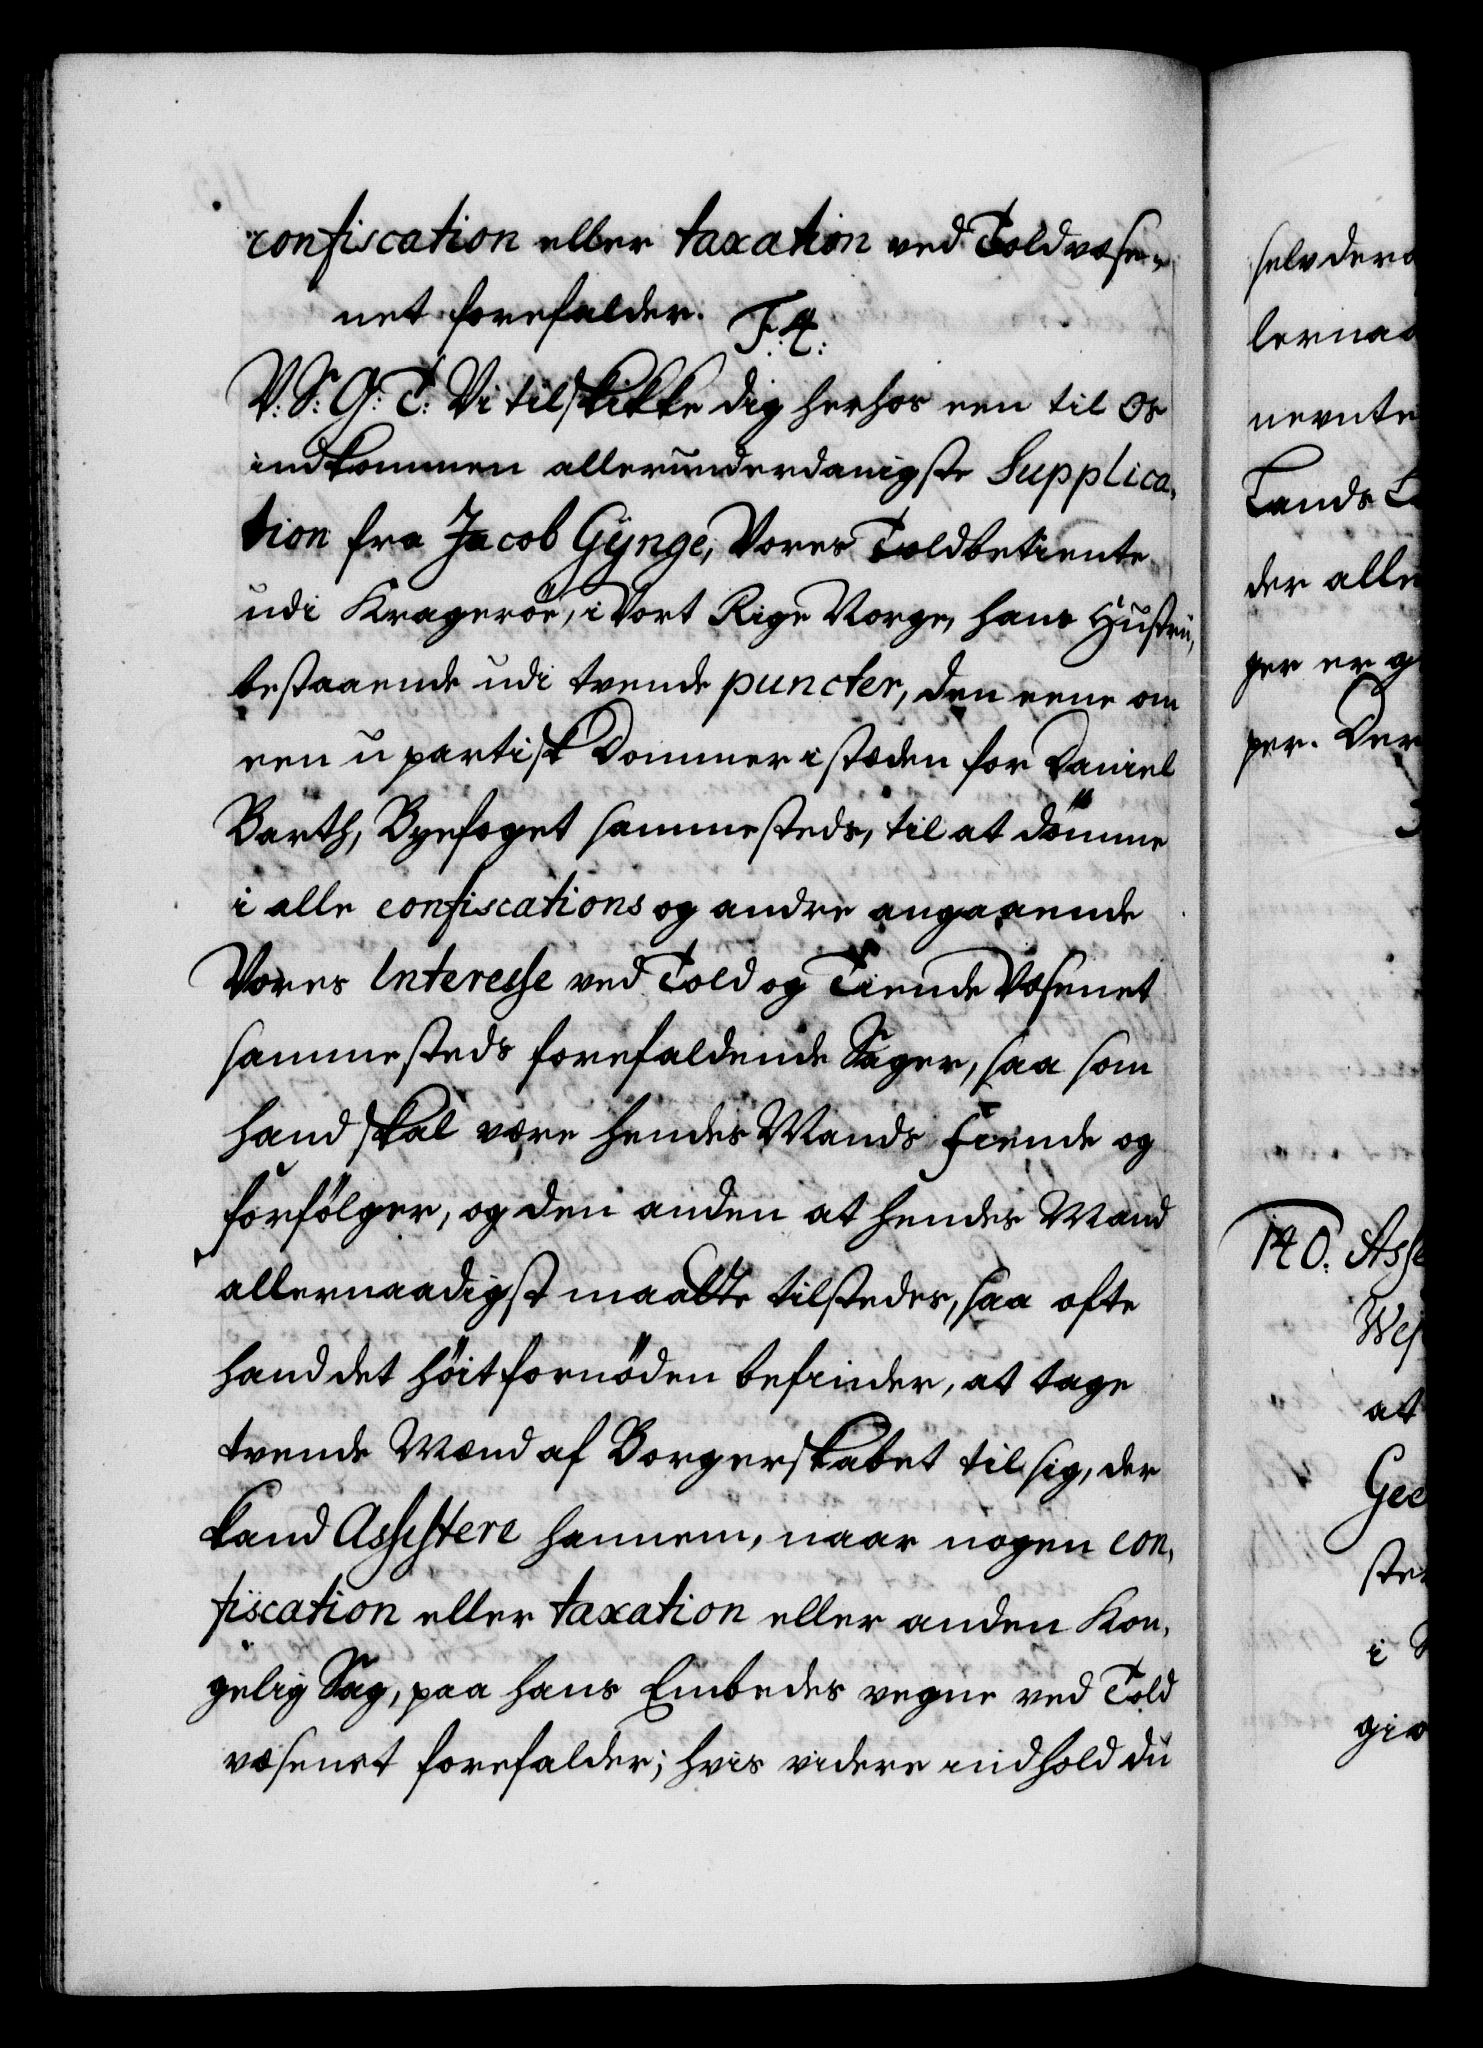 confiscation eller taxation ved Toldvæse-
net forefalder. F. 4.
V: S: G: T: Vi tilskikke dig herhos een til Os
indkommen allerunderdanigste Supplica-
tion fra Jacob Gÿnge, Vores Toldbetiente
udi Krageröe, i Vort Rige Norge, hans Hustrü,
bestaaende udi tvende puncter, den eene om
een u partisk Dommer i stæden for Daniel
Barth, Byefoget sammesteds, til at dömme
i alle confiscations og andre angaaende
Vores Interesse ved Told og Tiende Væsenet
sammesteds forefaldende Sager, saa som
hand skal være hendes Mands Fiende og
forfölger, og den anden at hendes Mand
allernaadigst maatte tilstedes, saa ofte
hand det höit fornöden befinder, at tage
tvende Mænd af Borgerskabet til sig, der
kand Assistere hannem, naar nogen con-
fiscation eller taxation eller anden Kon-
gelig Sag, paa hans Embedes vegne ved Told
væsenet forefalder; hvis videre indhold du
selv dera
lernaa
nevnte
Lands
der alle
ger er g
per. Der
140. Asse
at
Gee
ste
i S
giv